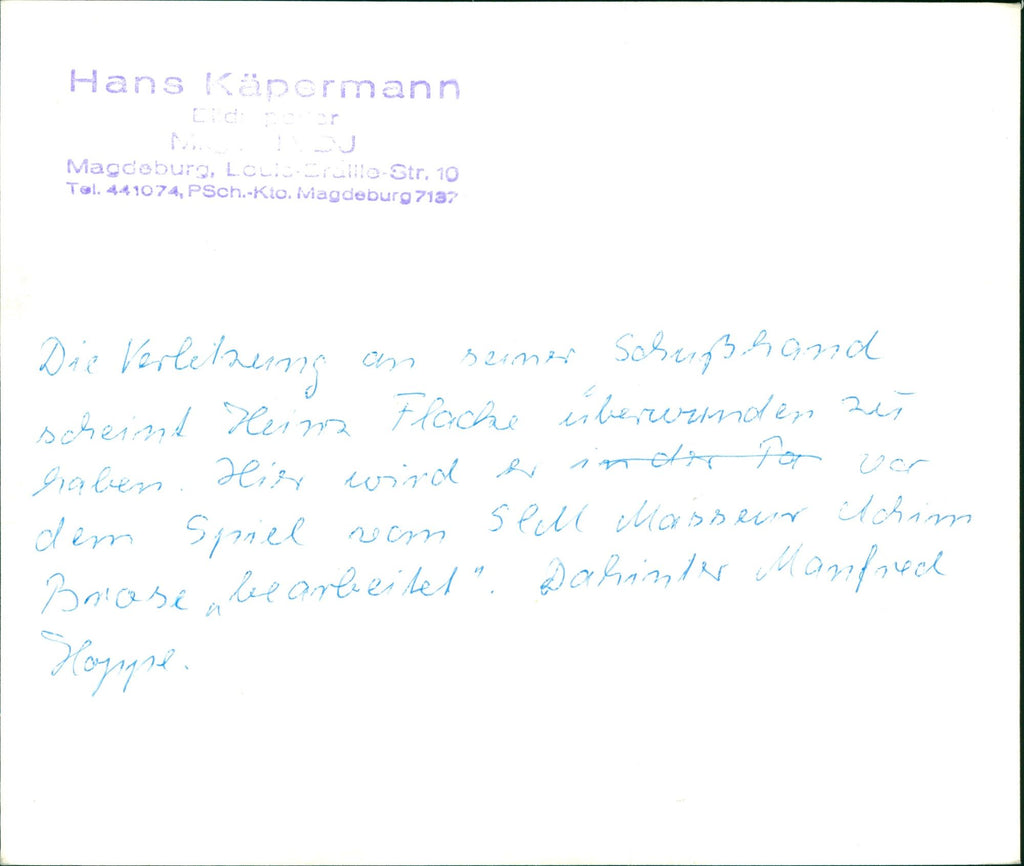 Hans Käpermann
Magdeburg, Louis-Braille-Str. 10
Tel. 441074, PSch.-Kto. Magdeburg 7137
Die Verletzung an seiner Schußhand
scheint Heinz Flacke überwunden zu
haben. Hier wird er in der Pa vor
dem Spiel vom SCM Masseur Achim
Briase „bearbeitet“. Dahinter Manfred
Hoppe.